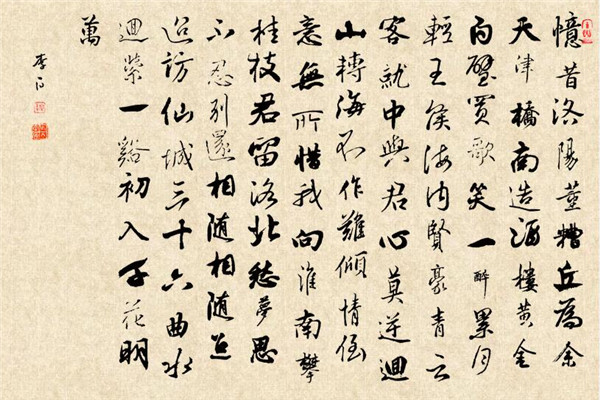 憶昔洛陽董糟丘為余
天津橋南造酒樓黃金
白璧買歌笑一醉累月
輕王侯海内賢豪青云
客就中與君心莫逆迴
山轉海不作難傾情倒
意無所惜我向淮南攀
桂枝君留洛北愁夢思
不忍别還相隨相隨迢
迢訪仙城三十六曲水
迴縈一谿初入千花明
萬
李白